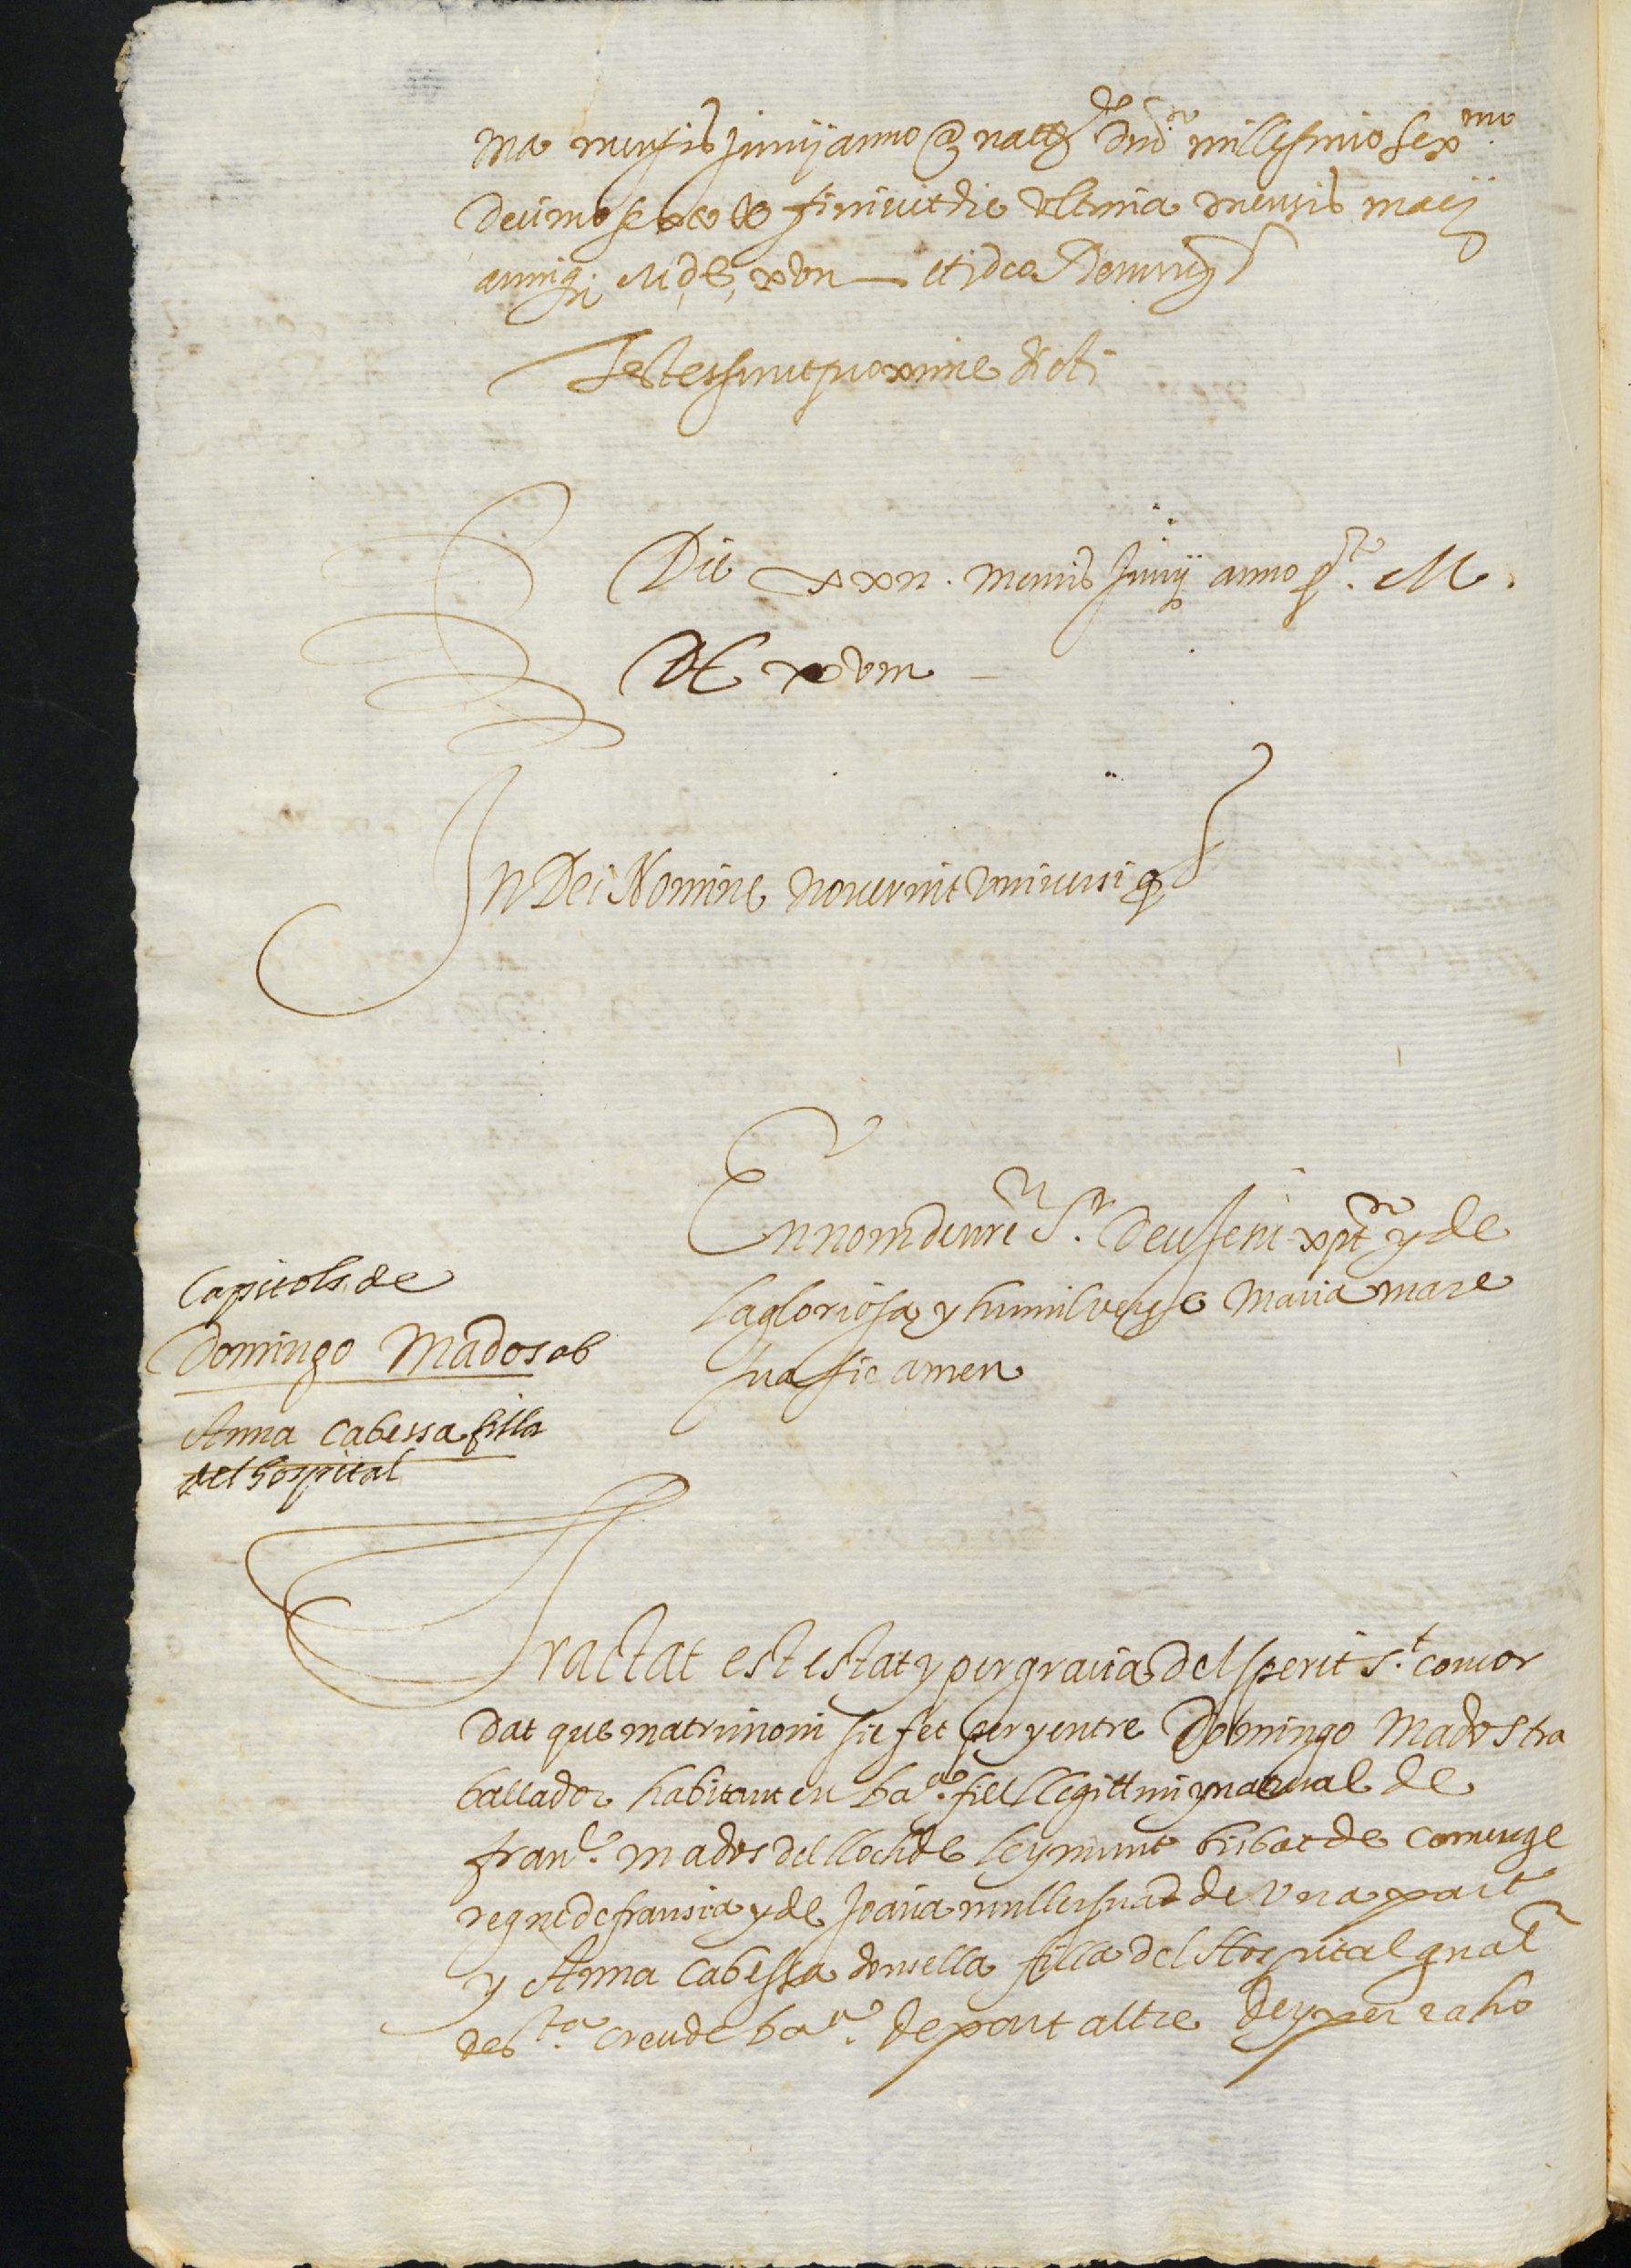 ma mensis Junij anno a natte dni millesimo sex.mo
decimo sexto et finivit die ultima mensis maij
anni M, dC, xvii — et ideo Renun
Testes sunt proxime dicti
Die xxii. mensis Junij anno p.t M.
DC xviii
In Dei Nomine noverint universi q
En nom de nre Sr. Deu Jesu xpt y de
la gloriosa y humil verge Maria mare
sua sie amen
Capitols de
Domingo Mados ab
Anna Cabessa filla
del hospital
Tractat es estat y per gracia del sperit S.t concor
dat que matrimoni sie fet per y entre Domingo Mados tra
ballador habitant en bar.na fill llegittim y natural de
fran.c mados del lloch de leymunt bisbat de Comenge
regne de fransia y de Joana muller sua de una part
y Anna Cabessa donsella filla del Hospital gnal
de S.ta creu de bar.na de part altre. De y per raho